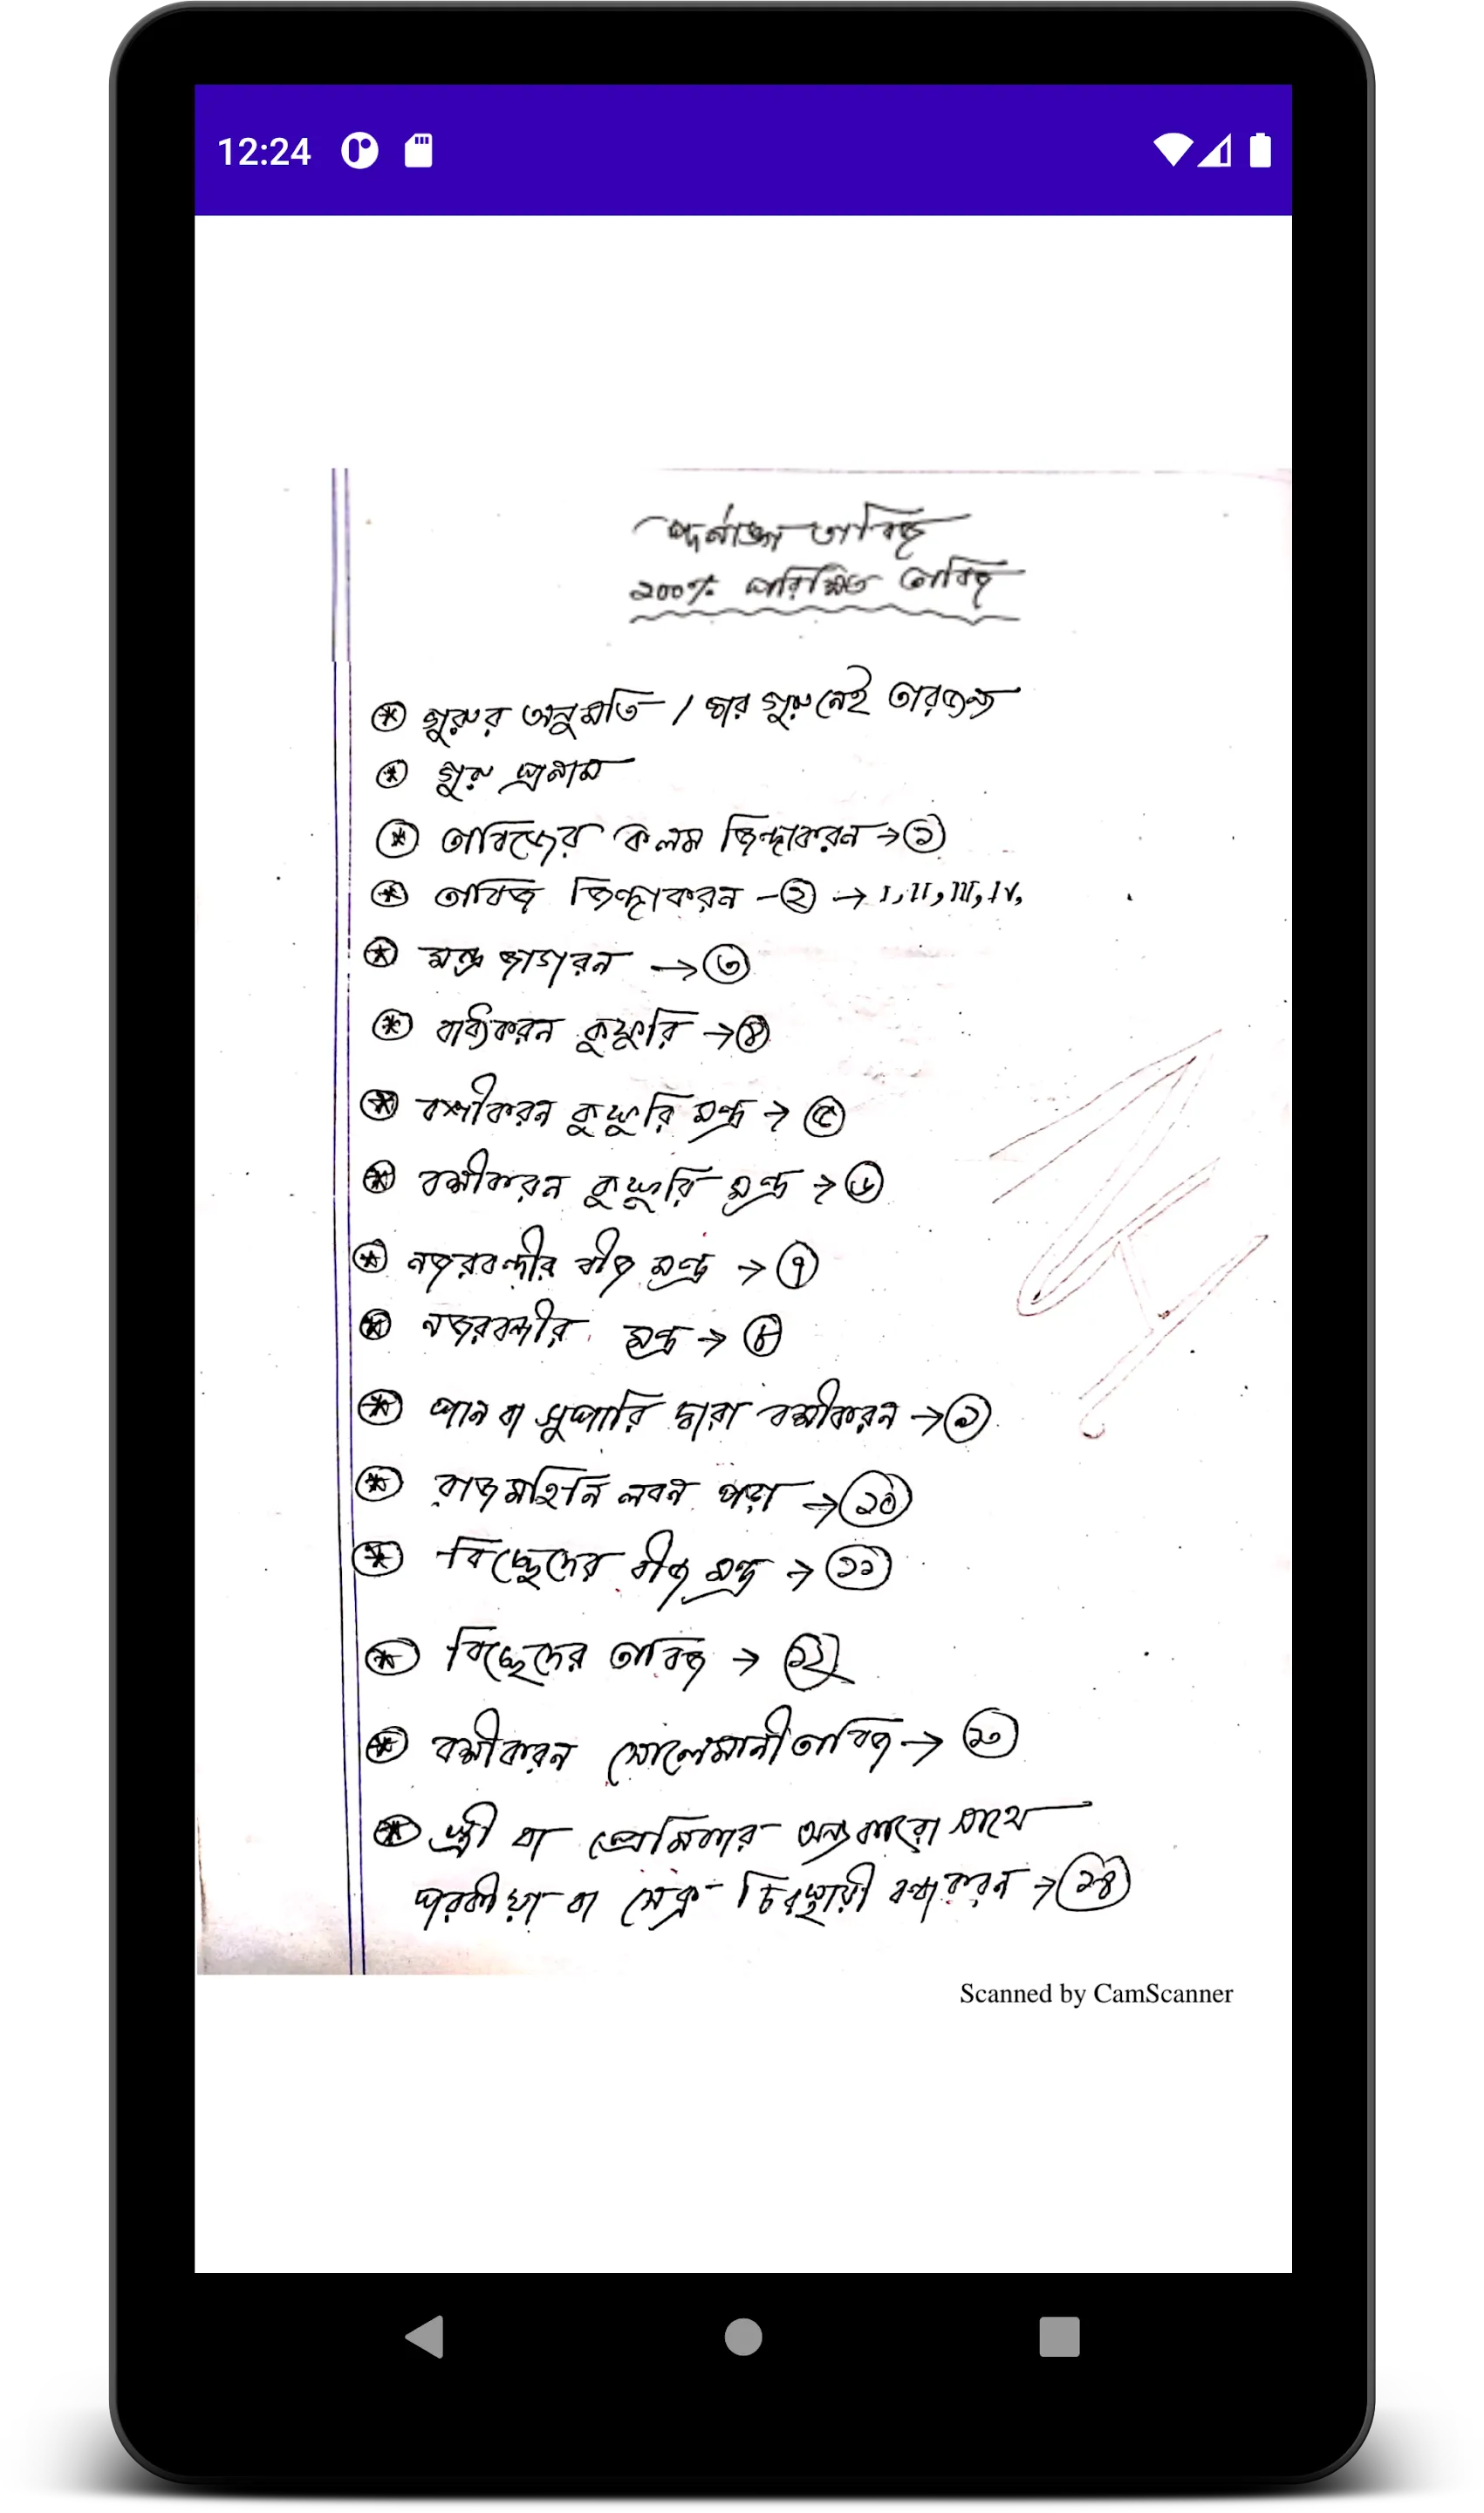 12:24
পূর্ণাঙ্গ তাবিজ
১০০% পরিক্ষিত তাবিজ
গুরুর অনুমতি / যার গুরু নেই তারজন্য
গুরু প্রনাম
তাবিজের কলম জিন্দাকরন → ১
তাবিজ জিন্দাকরন - ২ → I, II, III, IV,
মন্ত্র জাগরন → ৩
বাধ্যকরন কুফুরি → ৪
বশীকরন কুফুরি মন্ত্র → ৫
বশীকরন কুফুরি মন্ত্র → ৬
নজরবন্দীর বীজ মন্ত্র → ৭
নজরবন্দীর মন্ত্র → ৮
পান বা সুপারি দ্বারা বশীকরন → ৯
রাজমহিনি লবন পড়া → ১০
বিচ্ছেদের বীজ মন্ত্র → ১১
বিচ্ছেদের তাবিজ → ১২
বশীকরন সোলেমানী তাবিজ → ১৩
স্ত্রী বা প্রেমিকার অন্য কারো সাথে
পরকীয়া বা সেক্স চিরস্থায়ী বন্ধকরন → ১৪
Scanned by CamScanner